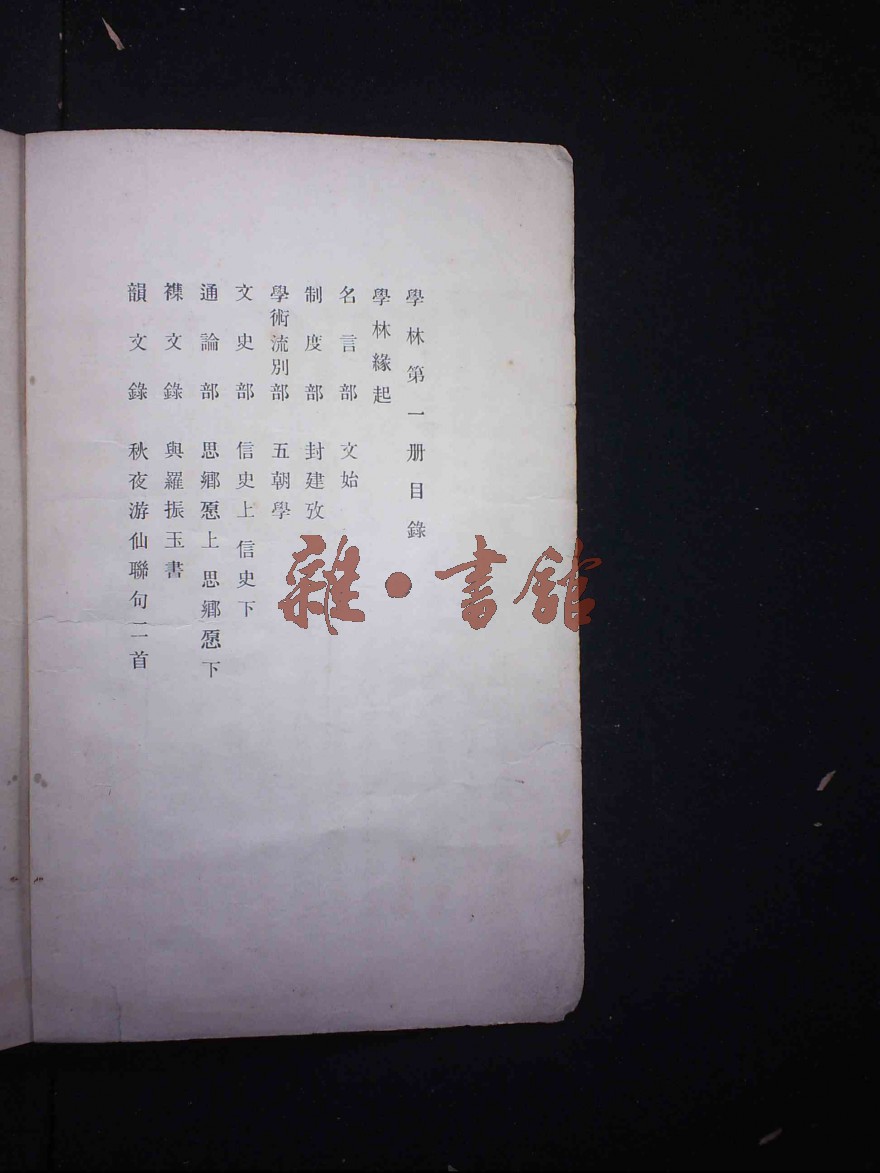 學林第一册目錄
學林緣起
名言部 文始
制度部 封建攷
學術流別部 五朝學
文史部 信史上 信史下
通論部 思鄉愿上 思鄉愿下
襍文錄 與羅振玉書
韻文錄 秋夜游仙聯句二首
雜·書館